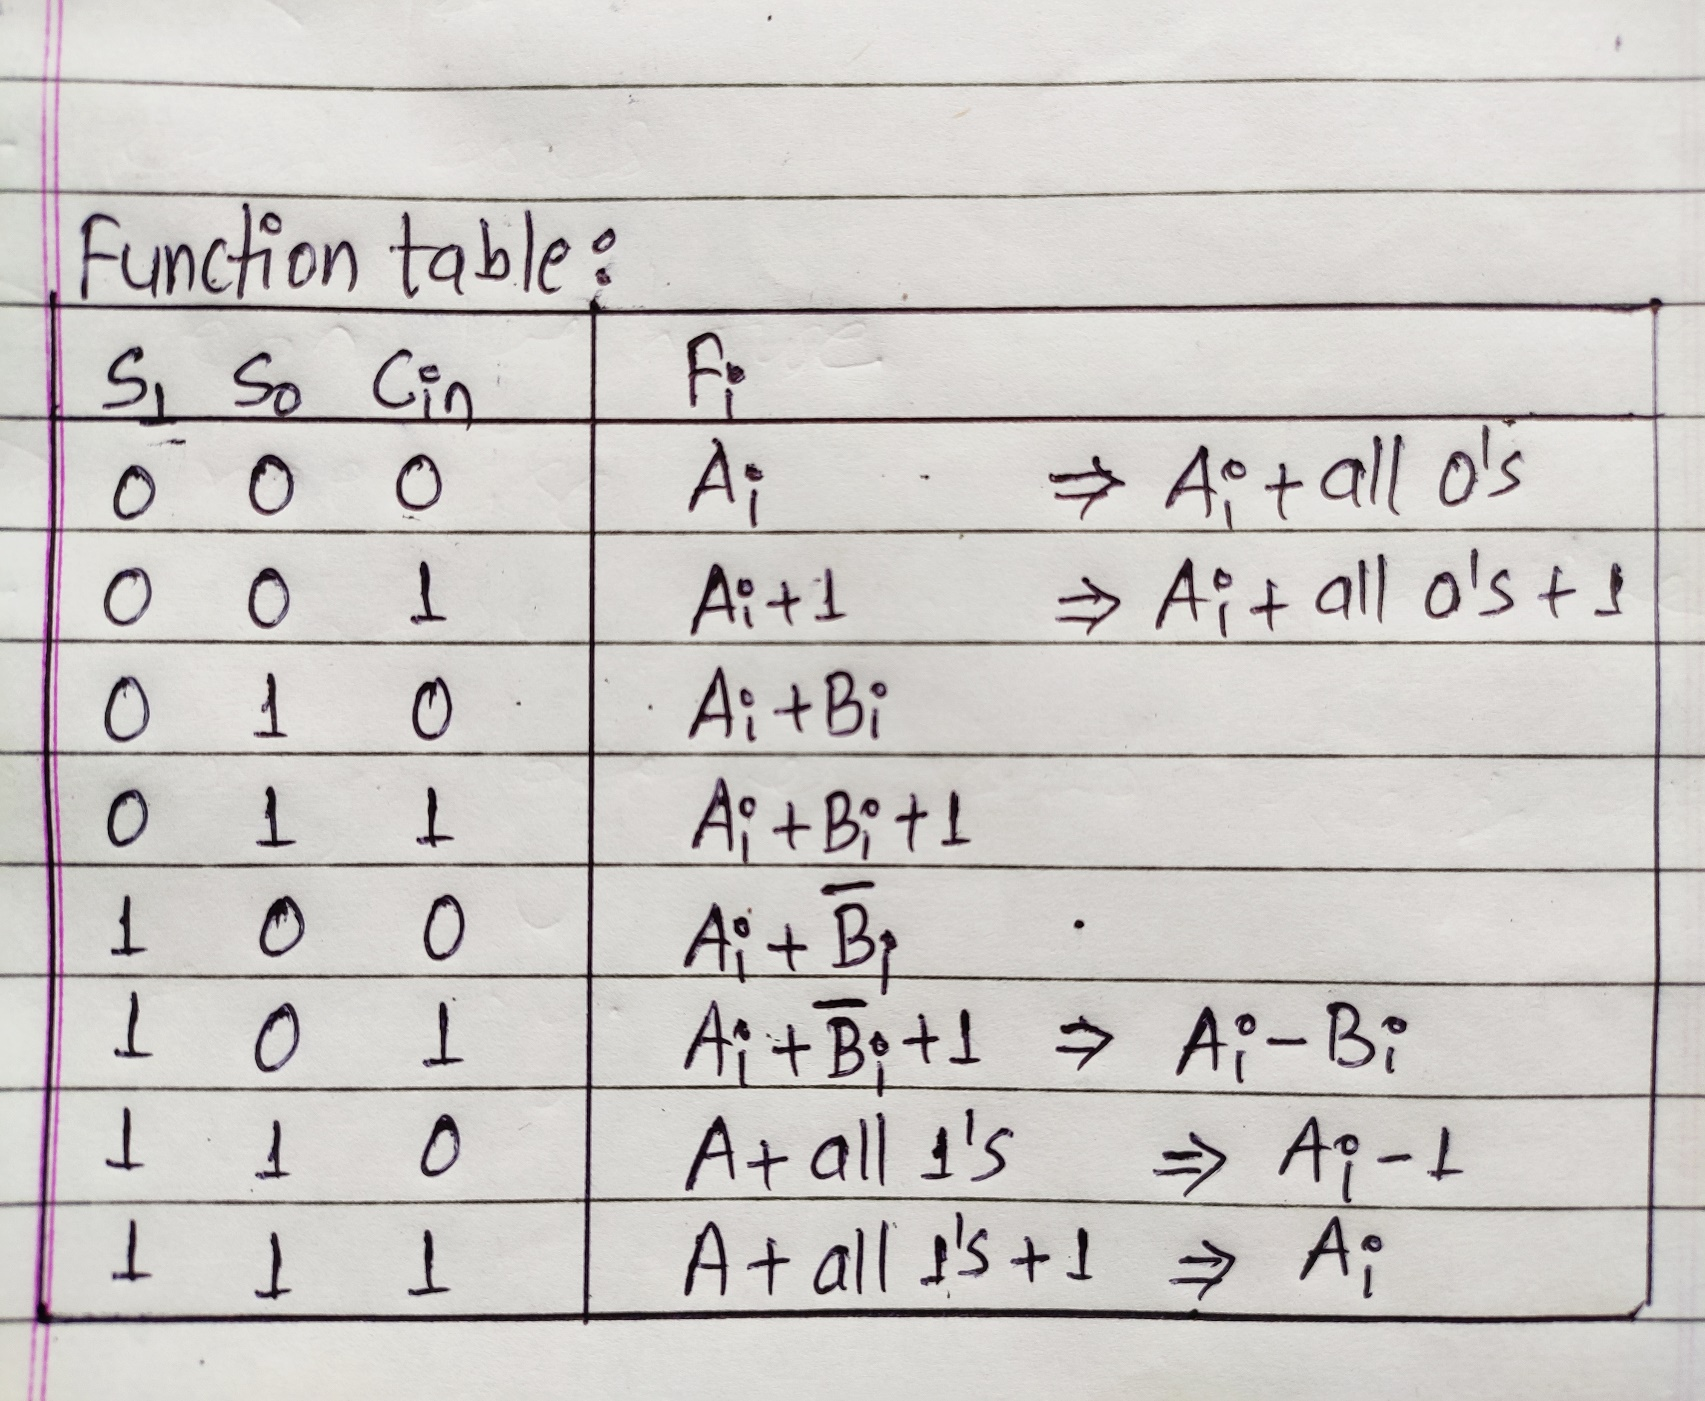 Function table:
S₁ S₀ Cin Fᵢ
0 0 0 Aᵢ ⇒ Aᵢ + all 0's
0 0 1 Aᵢ+1 ⇒ Aᵢ + all 0's + 1
0 1 0 Aᵢ+Bᵢ
0 1 1 Aᵢ+Bᵢ+1
1 0 0 Aᵢ+B̅ᵢ
1 0 1 Aᵢ+B̅ᵢ+1 ⇒ Aᵢ-Bᵢ
1 1 0 A+ all 1's ⇒ Aᵢ-1
1 1 1 A+ all 1's+1 ⇒ Aᵢ